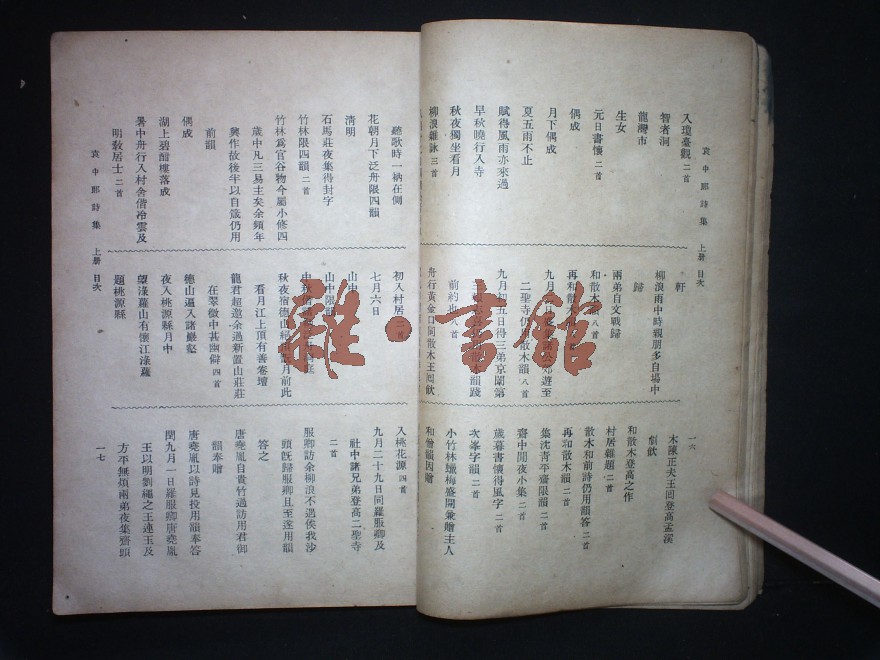 袁中郎詩集　上册　目次
入瓊臺觀二首
智者洞
龍灣市
生女
元日書懷二首
偶成
月下偶成
夏五雨不止
賦得風雨亦來過
早秋曉行入寺
秋夜獨坐看月
柳浪雜詠三首
軒
柳浪雨中時親朋多自場中
歸
兩弟自文戰歸
和散木韻八首
再和散木
二聖寺仍
散木韻八首
九月初五日得三弟京闈第
前約也八首
舟行黃金口同散木王回飲
一六
木陳正夫王回登高孟溪
劇飲
和散木登高之作
村居雜題二首
散木和前詩仍用韻答二首
再和散木韻二首
集沈青平齋限韻二首
齋中閒夜小集二首
歲暮書懷得風字二首
次峯字韻二首
小竹林蠟梅盛開兼贈主人
和僧韻因贈
雛歌時一衲在側
花朝月下泛舟限四韻
清明
石馬莊夜集得封字
竹林限四韻二首
竹林爲官谷物今屬小修四
歲中凡三易主矣余頻年
興作故後半以自箴仍用
前韻
偶成
湖上碧酣樓落成
暑中舟行入村舍偕冷雲及
明教居士二首
袁中郎詩集　上册　目次
初入村居二首
七月六日
山中
山中限韻
秋夜宿德山
月前此
看月江上頂有善卷壇
龍君超邀余過新置山莊莊
在翠微中甚幽僻四首
德山遍入諸巖壑
夜入桃源縣月中
望淥蘿山有懷江淥蘿
題桃源縣
入桃花源四首
九月二十九日同羅服卿及
社中諸兄弟登高二聖寺
二首
服卿訪余柳浪不遇俟我沙
頭旣歸服卿且至遂用韻
答之
唐堯胤自貴竹過訪用君御
韻奉贈
唐堯胤以詩見投用韻奉答
閏九月一日羅服卿唐堯胤
王以明劉繩之王遺玉及
方平無煩兩弟夜集齋頭
一七
雜·書館